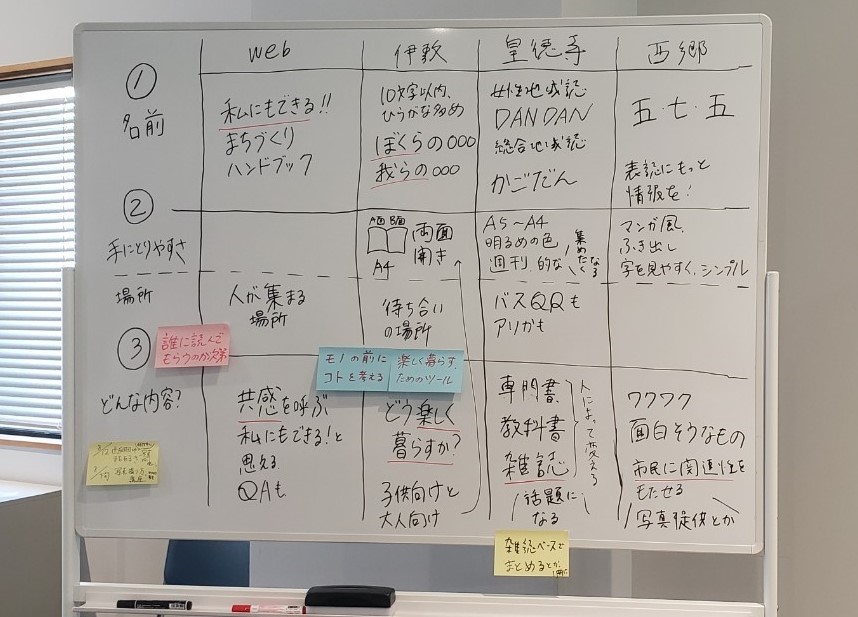 web
伊敷
皇徳寺
西郷
①
名前
私にもできる!!
まちづくり
ハンドブック
10文字以内、
ひらがな多め
ぼくらの○○○
我らの○○○
女性地域誌
DANDAN
総合地域誌
かごだん
五・七・五
表誌にもっと
情報を!
②
手にとりやすさ
A面 B面
両面
開き
A4
A5〜A4
明るめの色
週刊、的な
集めたく
なる
マンガ風、
ふき出し
字を見やすく、シンプル
場所
人が集まる
場所
待ち合い
の場所
バスQQも
アリかも
③
誰に読んで
もらうのか次第
モノの前に
コトを考える
楽しく暮らす、
ためのツール
どんな内容?
共感を呼ぶ
私にもできる!と
思える
QAも
どう楽しく
暮らすか?
子供向けと
大人向け
専門書
教科書
雑誌
人によって変える
話題に
なる
ワクワク
面白そうなもの
市民に関連性を
もたせる
写真提供とか
雑誌ベースで
まとめるとか